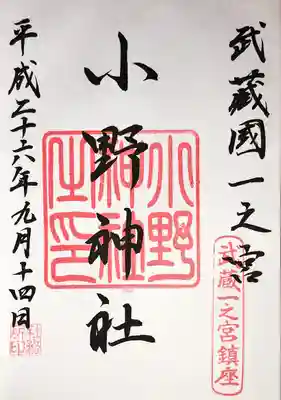 武蔵國一之宮
武蔵一之宮鎮座
小野神社
小野神社之印
平成二十六年九月十四日